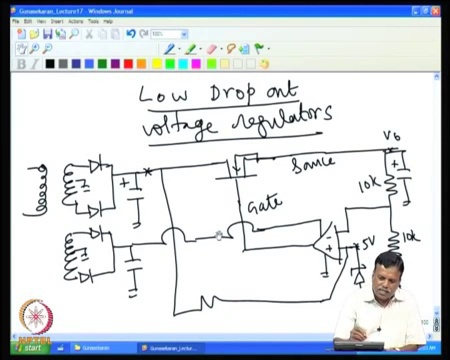 Gunasekaran_Lecture17
File Edit View Insert Actions Tools Help
100%
B I
Low Drop out
voltage regulators
Vo
Source
10k
Gate
5V
10k
NPTEL
start
Gunasekaran
Gunasekaran_Lectu...